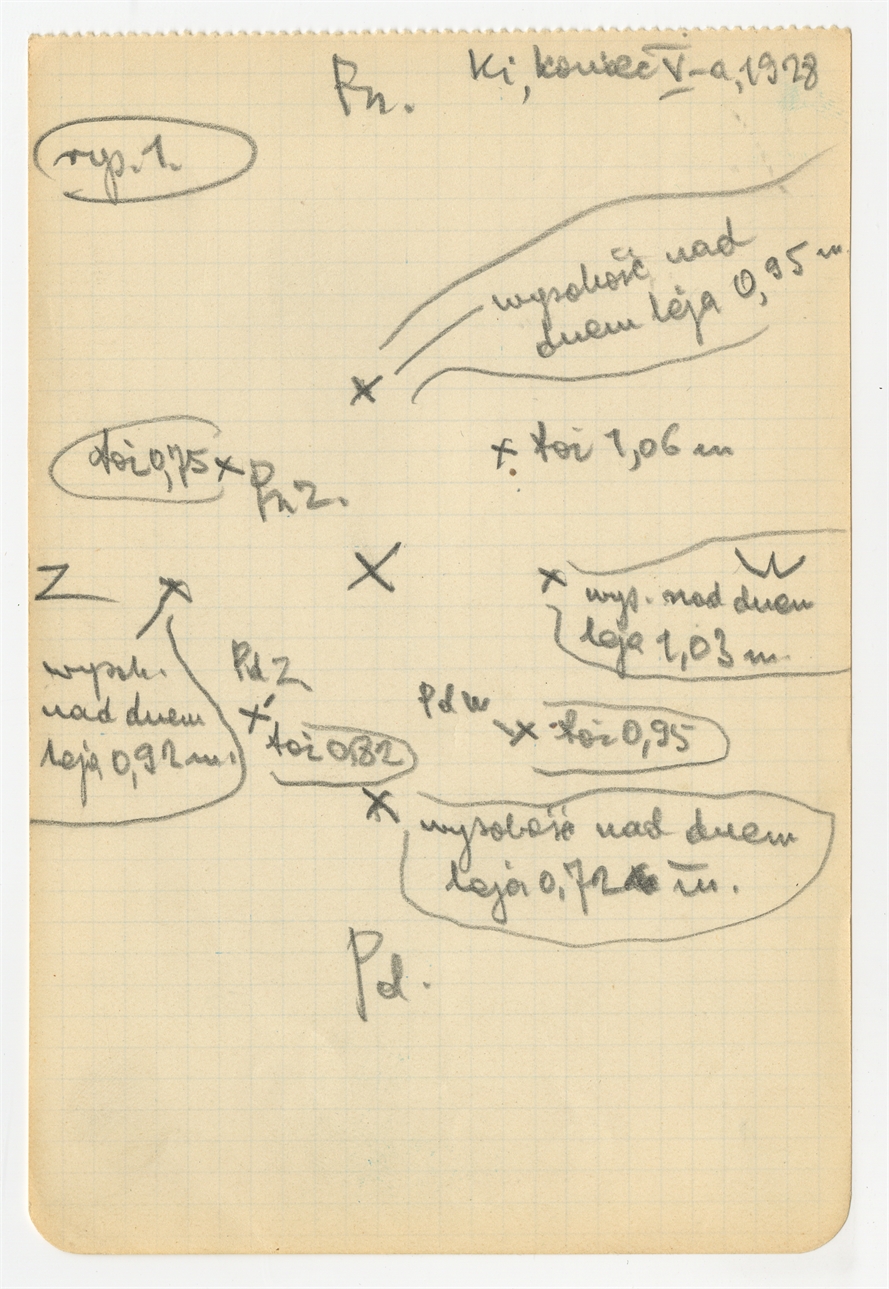 Pn.
Ki, koniec V-a, 1928
rys. 1.
wysokość nad
dnem leja 0,95 m
toż 0,75
PnZ.
toż 1,06 m
Z
W
wys. nad dnem
leja 1,03 m
wysok.
nad dnem
leja 0,92 m.
PdZ
toż 0,82
PdW
toż 0,95
wysokość nad dnem
leja 0,72 m.
Pd.